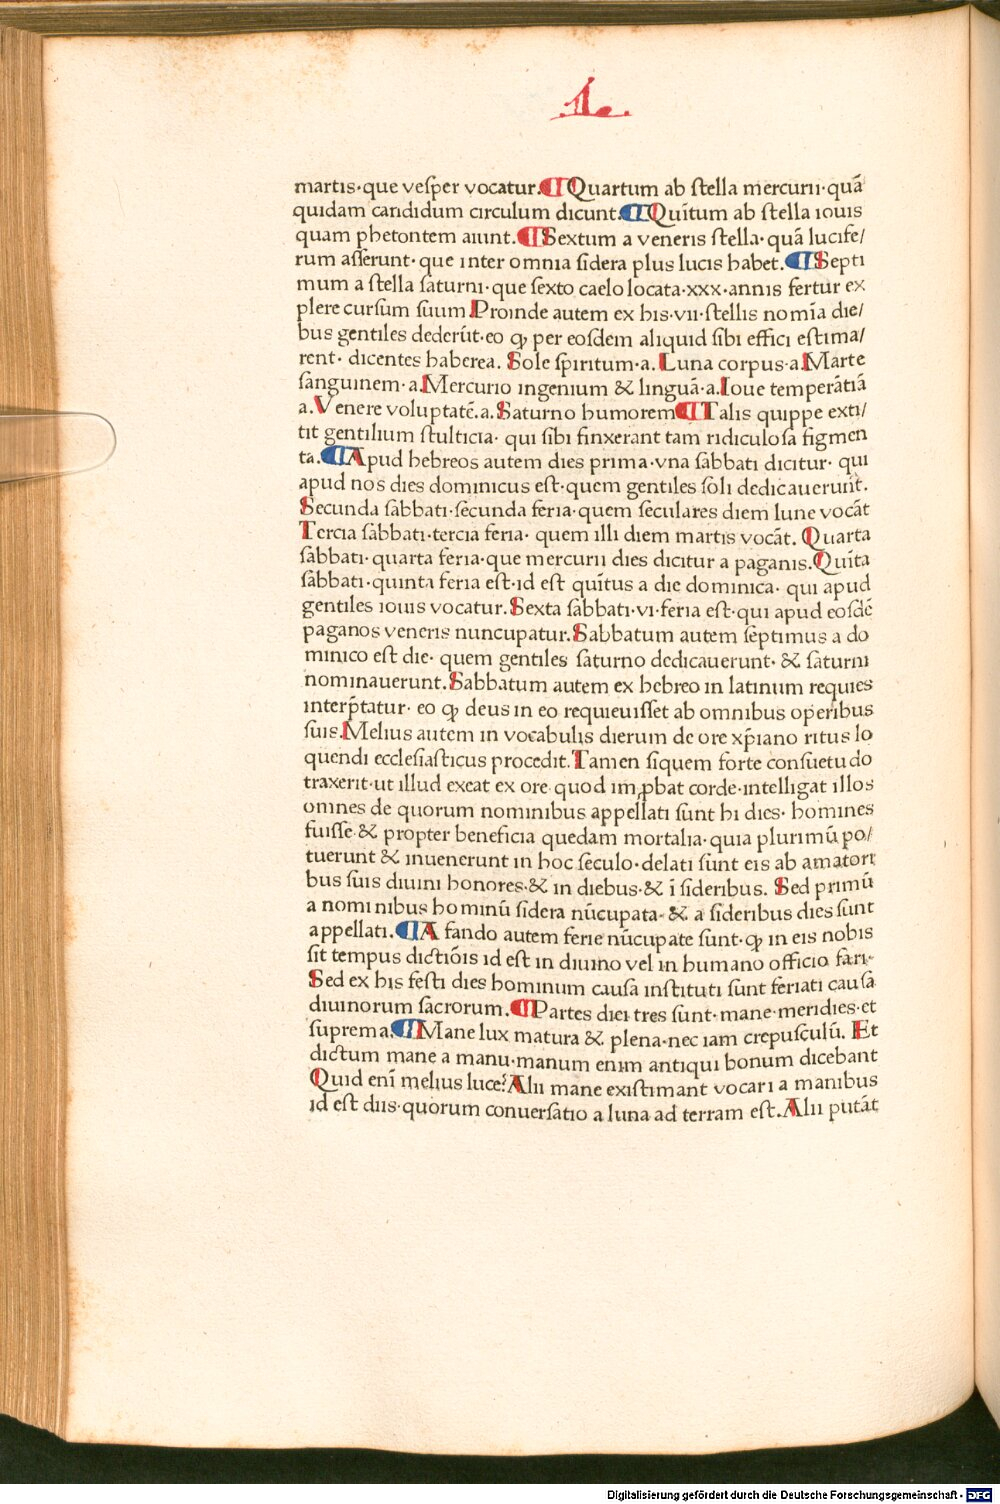 L
martis·que veſper vocatur.¶Quartum ab ſtella mercurii·quā
quidam candidum circulum dicunt.¶Quītum ab ſtella iouis
quam phetontem aiunt.¶Sextum a veneris ſtella·quā lucife/
rum aſſerunt·que inter omnia ſidera plus lucis habet.¶Septi
mum a ſtella ſaturni·que ſexto caelo locata·xxx·annis fertur ex
plere curſum ſuum Proinde autem ex his·vii·ſtellis nomīa die/
bus gentiles dederūt·eo ꝙ per eoſdem aliquid ſibi effici eſtima/
rent· dicentes haberea. Sole ſpiritum·a. Luna corpus·a.Marte
ſanguinem·a.Mercurio ingenium & linguā·a.Ioue temperātiā
a.Venere voluptatē.a.Saturno humorem¶Talis quippe exti/
tit gentilium ſtulticia· qui ſibi finxerant tam ridiculoſa figmen
ta.¶Apud hebreos autem dies prima·vna ſabbati dicitur· qui
apud nos dies dominicus eſt·quem gentiles ſoli dedicauerunt.
Secunda ſabbati·ſecunda feria·quem ſeculares diem lune vocāt
Tercia ſabbati·tercia feria· quem illi diem martis vocāt. Quarta
ſabbati·quarta feria·que mercurii dies dicitur a paganis.Quīta
ſabbati·quinta feria eſt·id eſt quītus a die dominica· qui apud
gentiles iouis vocatur.Sexta ſabbati·vi·feria eſt·qui apud eoſdē
paganos veneris nuncupatur.Sabbatum autem ſeptimus a do
minico eſt die· quem gentiles ſaturno dedicauerunt· & ſaturni
nominauerunt.Sabbatum autem ex hebreo in latinum requies
interp̄tatur· eo ꝙ deus in eo requieuiſſet ab omnibus operibus
ſuis.Melius autem in vocabulis dierum de ore xp̄iano ritus lo
quendi eccleſiaſticus procedit.Tamen ſiquem forte conſuetudo
traxerit·ut illud exeat ex ore quod imꝓbat corde·intelligat illos
omnes de quorum nominibus appellati ſunt hi dies· homines
fuiſſe & propter beneficia quedam mortalia·quia plurimū po/
tuerunt & inuenerunt in hoc ſeculo·delati ſunt eis ab amatori
bus ſuis diuini honores·& in diebus·& ī ſideribus. Sed primū
a nominibus hominū ſidera nūcupata·& a ſideribus dies ſunt
appellati.¶A fando autem ferie nūcupate ſunt·ꝙ in eis nobis
ſit tempus dictiōis id eſt in diuino vel in humano officio fari·
Sed ex his feſti dies hominum cauſa inſtituti ſunt feriati cauſa
diuinorum ſacrorum.¶Partes diei tres ſunt·mane·meridies·et
ſuprema.¶Mane lux matura & plena·nec iam crepuſculū. Et
dictum mane a manu·manum enim antiqui bonum dicebant
Quid enī melius luce?Alii mane exiſtimant vocari a manibus
id eſt diis·quorum conuerſatio a luna ad terram eſt.Alii putāt
Digitalisierung gefördert durch die Deutsche Forschungsgemeinschaft - DFG